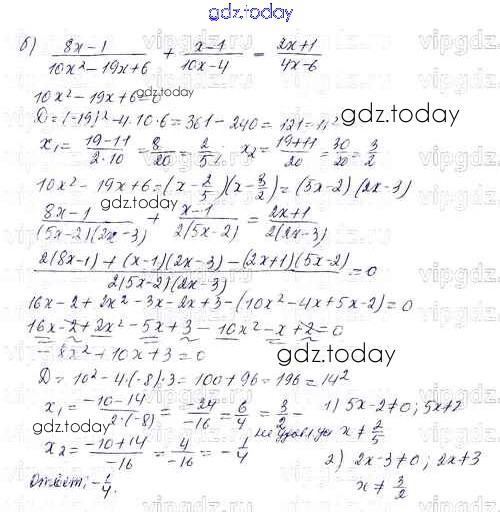 gdz.today
б) (8x-1)/(10x²-19x+6) + (x-1)/(10x-4) = (2x+1)/(4x-6)
10x²-19x+6=0
gdz.today
D=(-19)²-4·10·6=361-240=121=11²
gdz.today
x₁=(19-11)/(2·10)=8/20=2/5; x₂=(19+11)/20=30/20=3/2
10x²-19x+6=(x-2/5)(x-3/2)=(5x-2)(2x-3)
gdz.today
(8x-1)/((5x-2)(2x-3)) + (x-1)/(2(5x-2)) = (2x+1)/(2(2x-3))
(2(8x-1)+(x-1)(2x-3)-(2x+1)(5x-2))/(2(5x-2)(2x-3))=0
gdz.today
16x-2+2x²-3x-2x+3-(10x²-4x+5x-2)=0
16x-2+2x²-5x+3-10x²-x+2=0
-8x²+10x+3=0
gdz.today
D=10²-4·(-8)·3=100+96=196=14²
x₁=(-10-14)/(2·(-8))=(-24)/(-16)=6/4=3/2-
1) 5x-2≠0; 5x≠2
gdz.today
x≠2/5
x₂=(-10+14)/(-16)=4/(-16)=-1/4
2) 2x-3≠0; 2x≠3
Ответ: -1/4.
x≠3/2
gdz.today